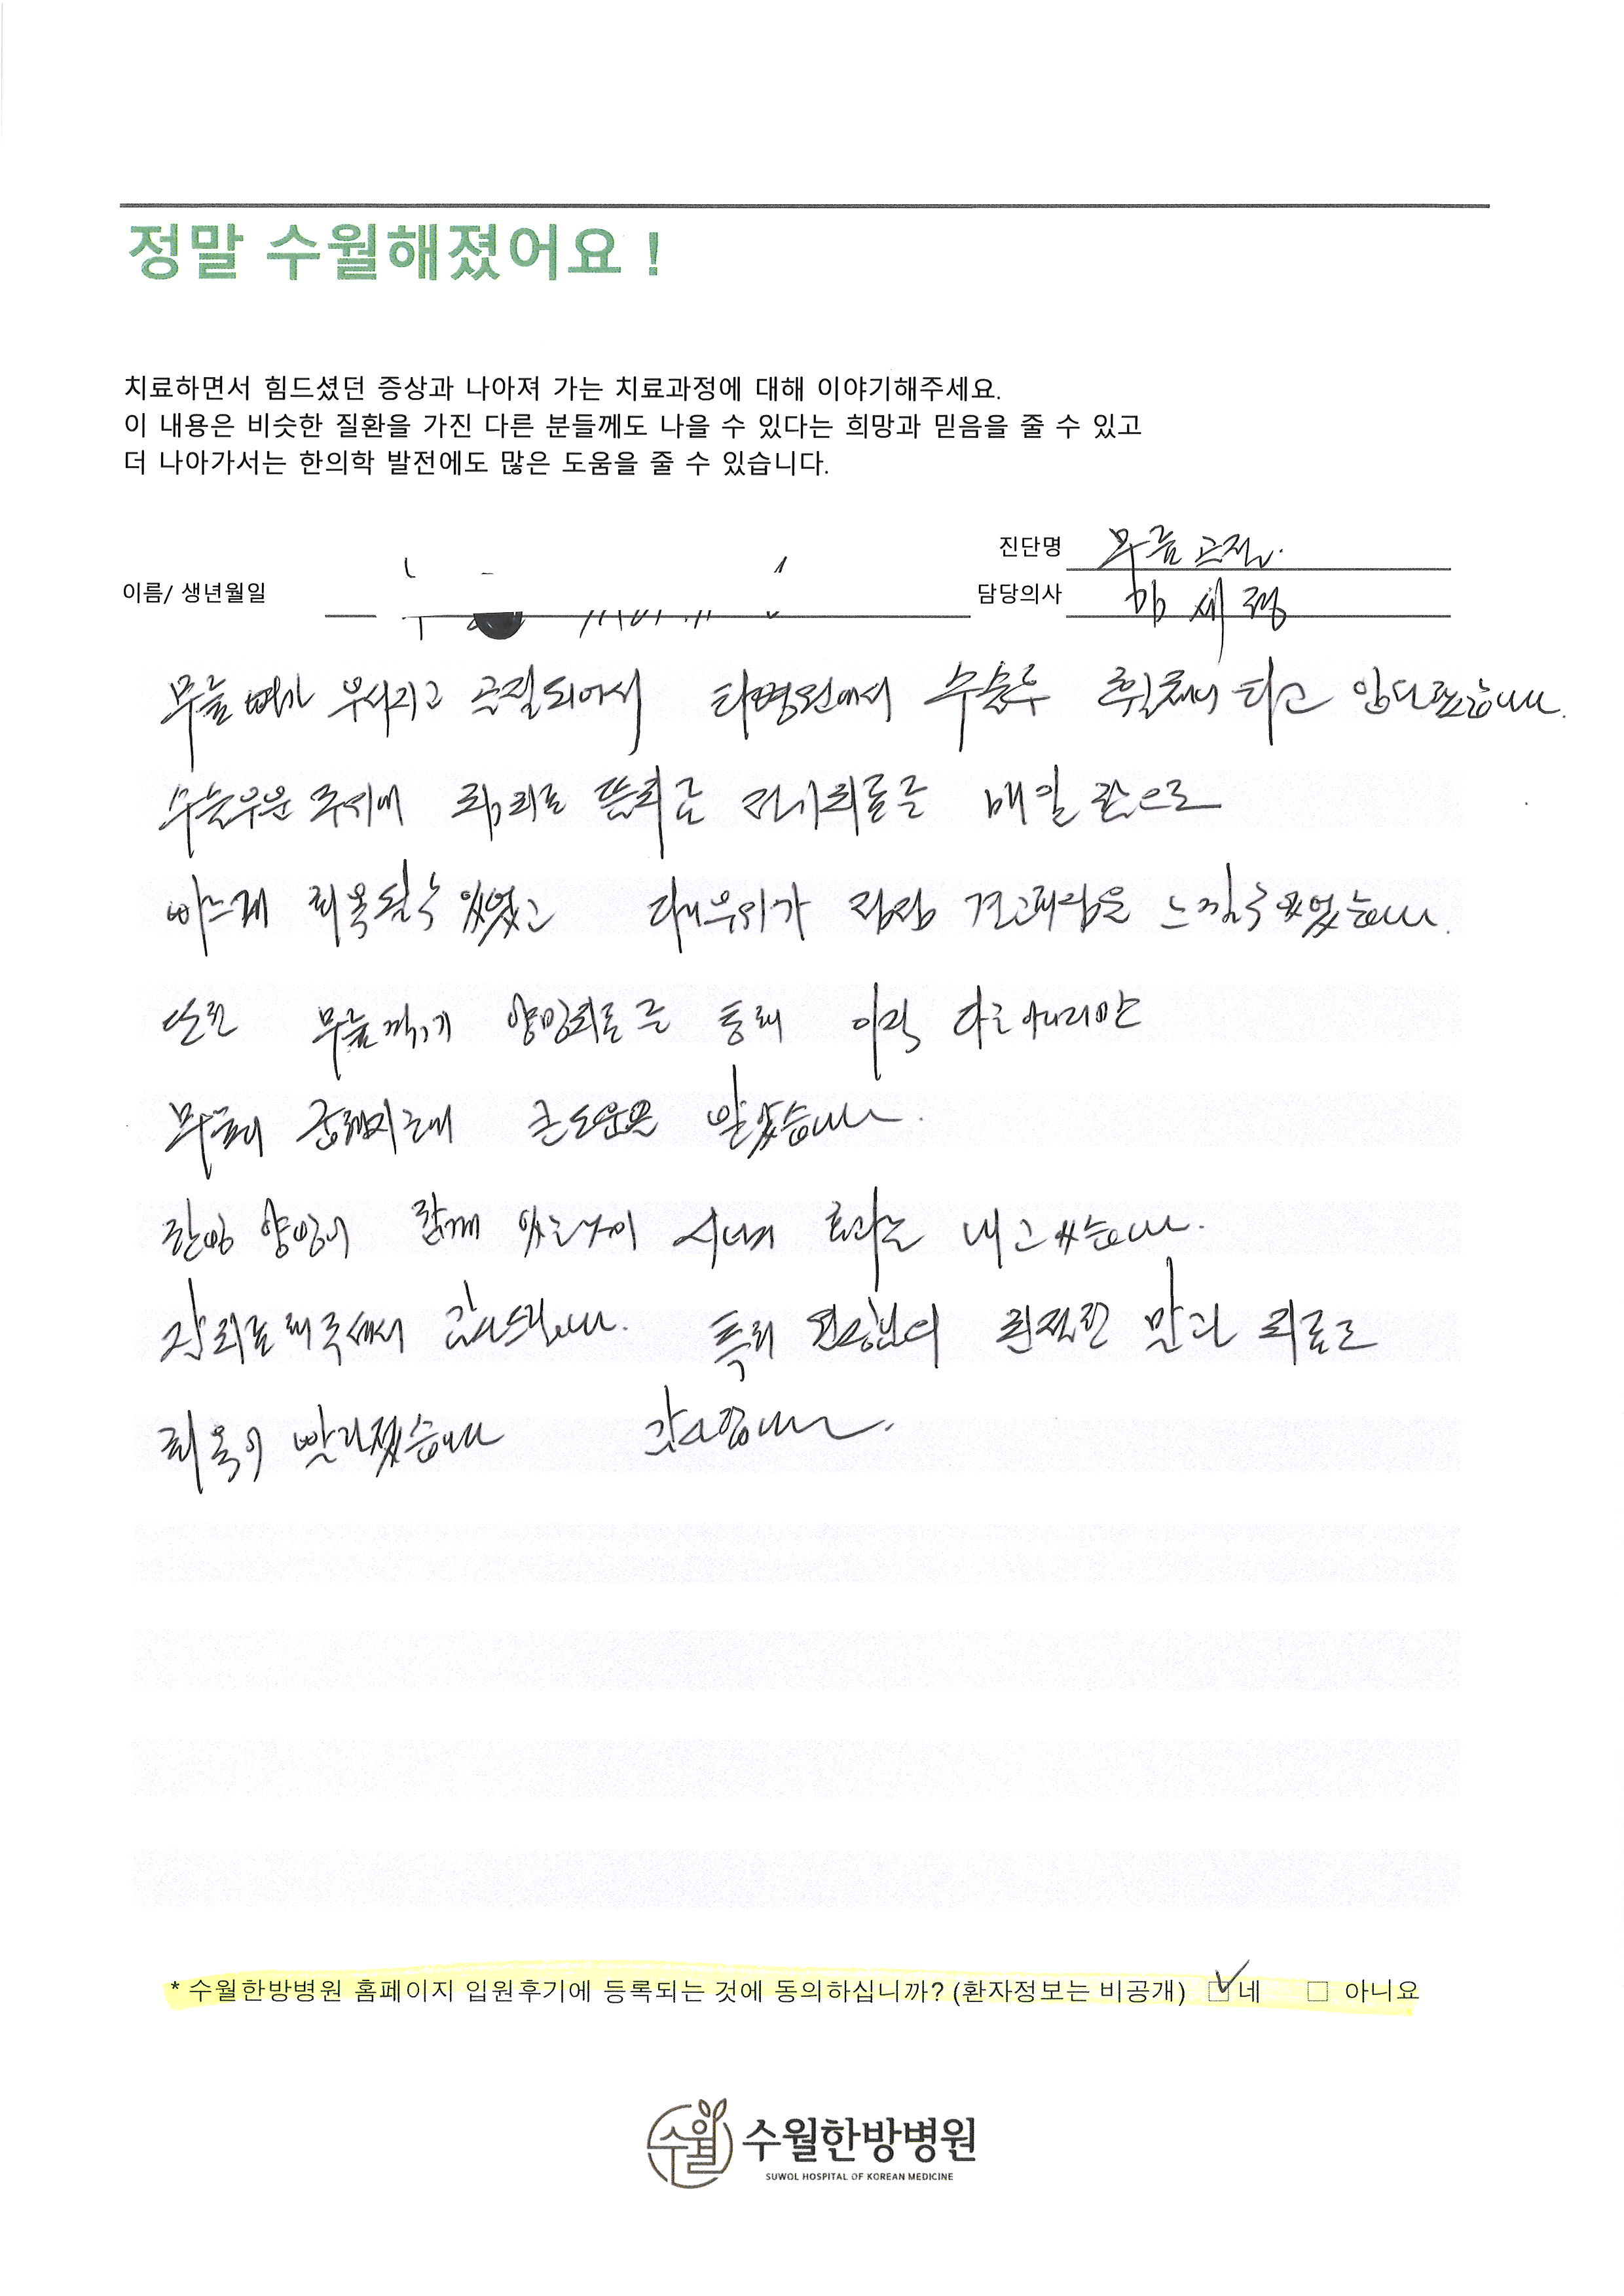 정말 수월해졌어요 !
치료하면서 힘드셨던 증상과 나아져 가는 치료과정에 대해 이야기해주세요.
이 내용은 비슷한 질환을 가진 다른 분들께도 나을 수 있다는 희망과 믿음을 줄 수 있고
더 나아가서는 한의학 발전에도 많은 도움을 줄 수 있습니다.
진단명 무릎 골절.
이름/ 생년월일
담당의사
무릎 뼈가 부서지고 골절되어서 타병원에서 수술후 휠체어 타고 입원했습니다.
수술부위 주위에 침치료 뜸치료 전기치료를 매일 함으로
빠르게 회복될수 있었고 다리부위가 점점 견고해짐을 느낄수 있었습니다.
또한 무릎꺾기 양방치료를 통해 아직 다는 아니지만
무릎이 굽혀지는데 큰 도움을 받았습니다.
한방 양방이 함께 있는것이 시너지 효과를 내고 있습니다.
잘 치료해주셔서 감사드립니다. 특히 원장님의 친절한 말과 치료로
회복이 빨라졌습니다 감사합니다.
* 수월한방병원 홈페이지 입원후기에 등록되는 것에 동의하십니까? (환자정보는 비공개) 네 아니요
수월 수월한방병원
SUWOL HOSPITAL OF KOREAN MEDICINE